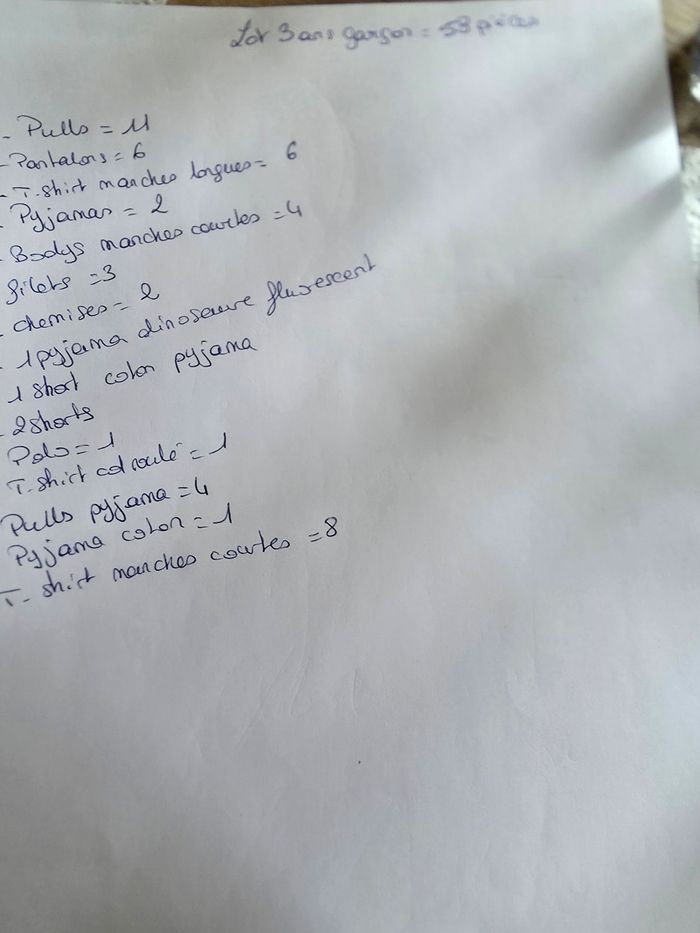 Lot 3 ans garçon = 53 pièces
- Pulls = 11
- Pantalons = 6
- T-shirt manches longues = 6
- Pyjamas = 2
- Bodys manches courtes = 4
gilets = 3
- chemises = 2
- 1 pyjama dinosaure flurescent
1 short coton pyjama
- 2 shorts
Polo = 1
T-shirt col roulé = 1
Pulls pyjama = 4
Pyjama coton = 1
T-shirt manches courtes = 8